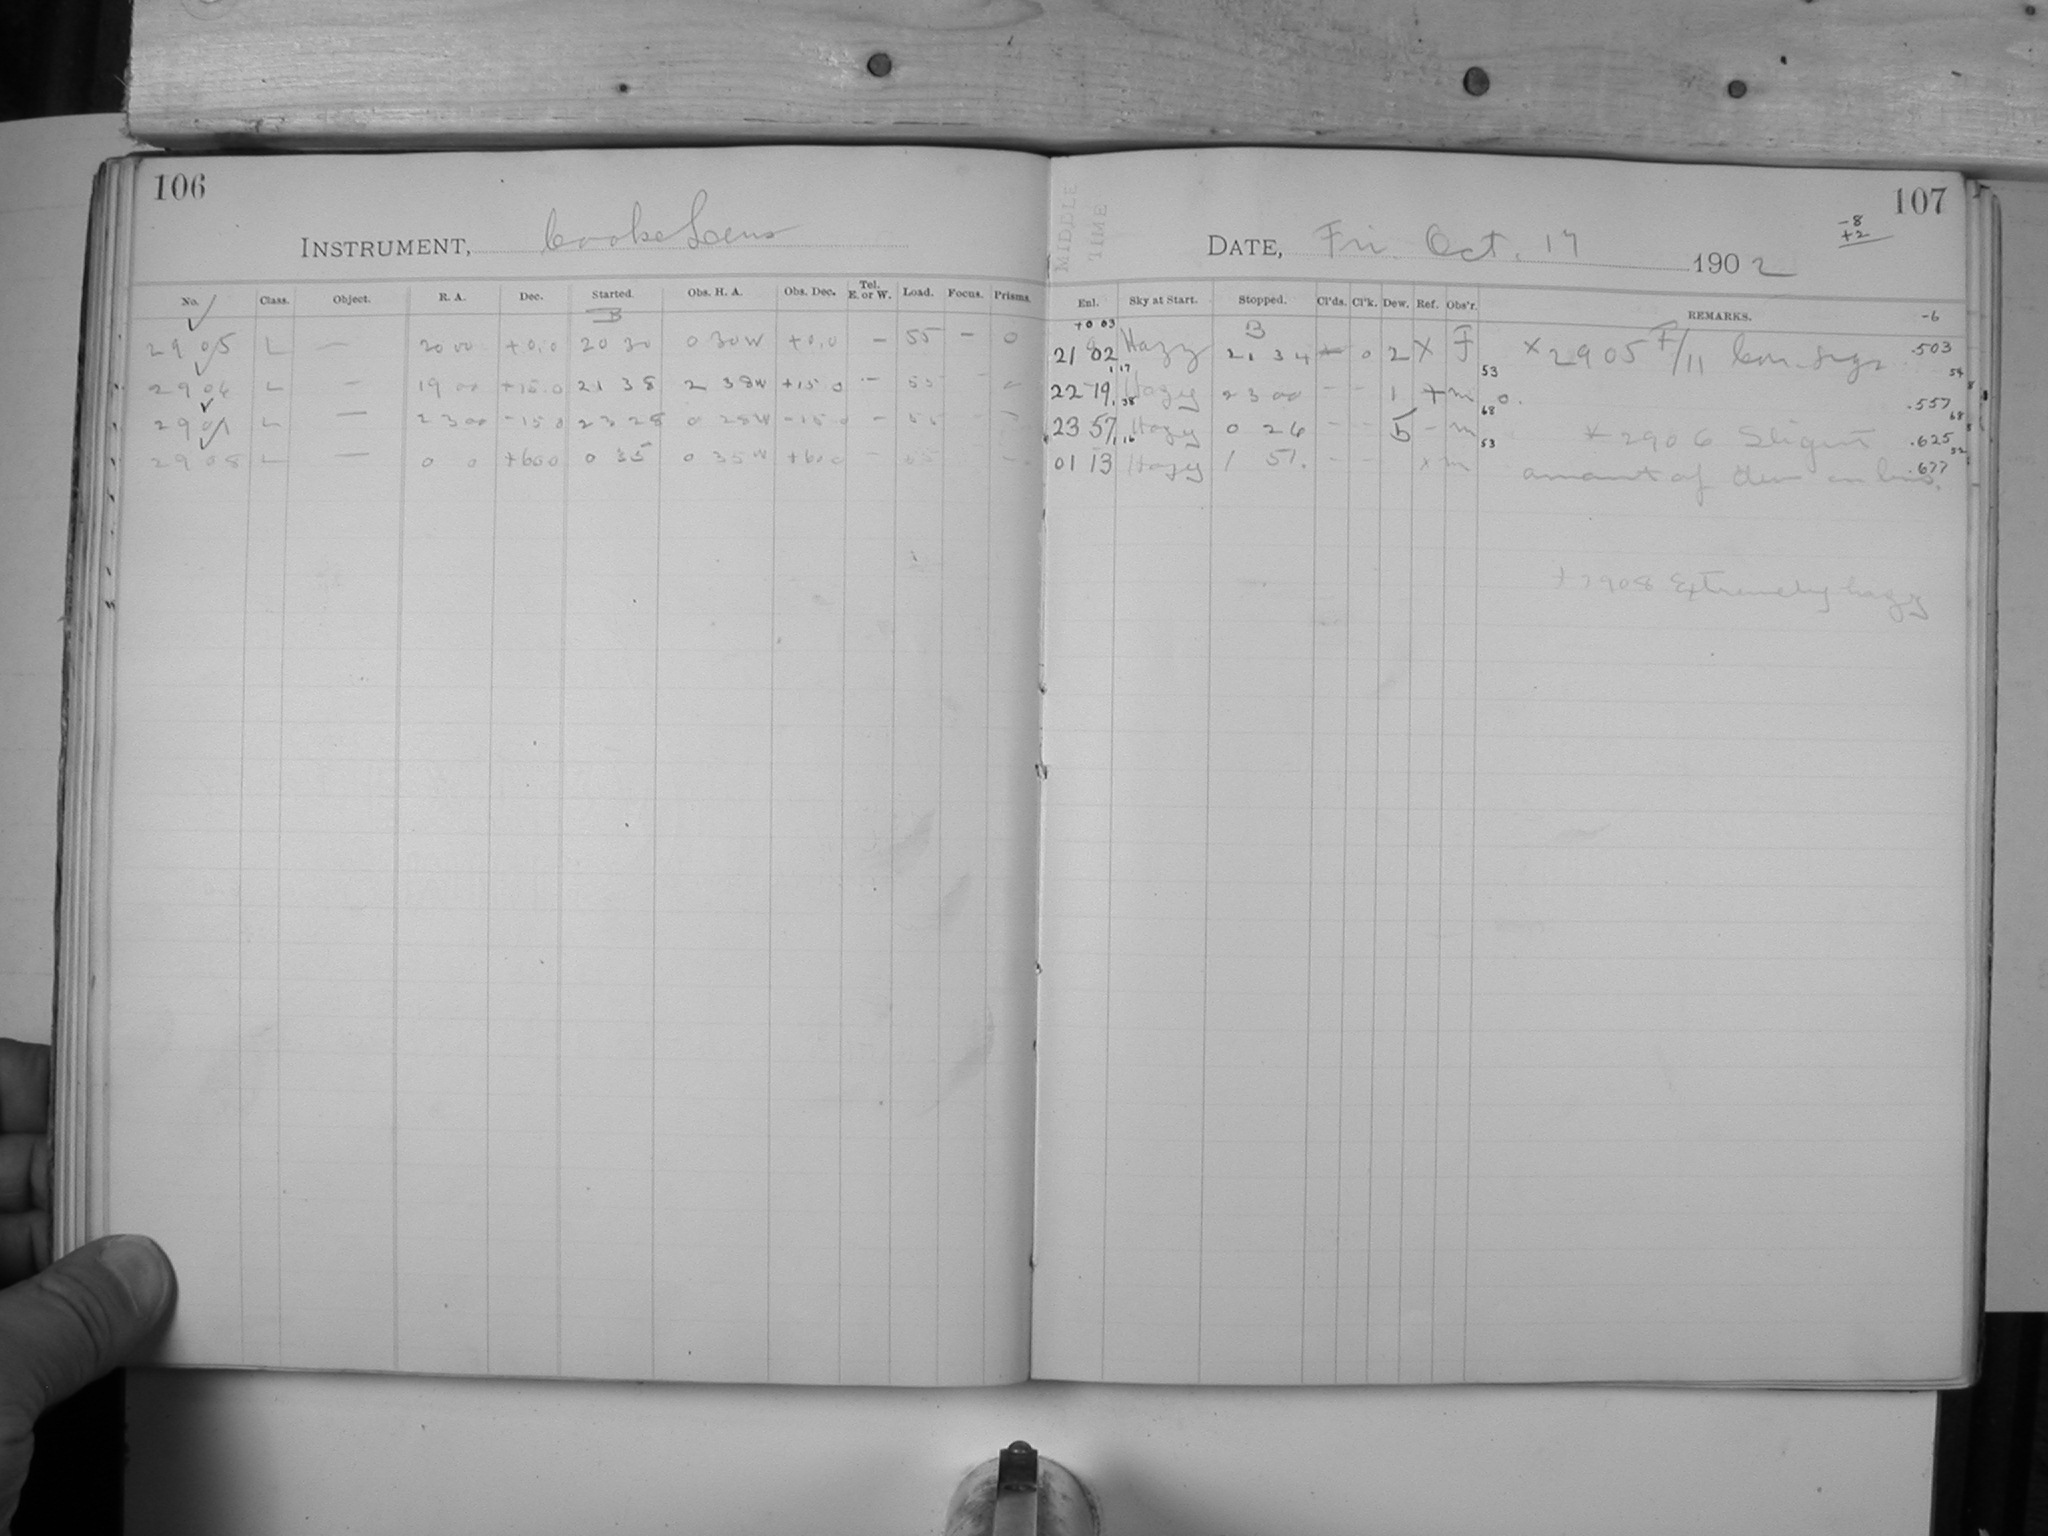 106
INSTRUMENT, Cooke Lens
No. Class. Object. R. A. Dec. Started. Obs. H. A. Obs. Dec. Tel. E. or W. Load. Focus. Prisms.
B
2905 L — 20 00 +0.0 20 30 0 30W +0.0 — 55 — 0
2906 L — 19 00 +15.0 21 38 2 38W +15.0 — 55
2907 L — 23 00 -15.0 23 28 0 28W -15.0 — 55
2908 L — 0 0 +60.0 0 35 0 35W +60.0 — 55
107
MIDDLE TIME
DATE, Fri. Oct. 17 1902
-8
+2
Enl. Sky at Start. Stopped. Cl'ds. Cl'k. Dew. Ref. Obs'r. REMARKS. -6
+0 03 B
21 02 Hazy 21 34 — 0 2 X F 53 × 2905 F/11 .503
1 17 54
22 19 Hazy 23 00 — — 1 + m 0. .557
1 38 68 68
23 57 Hazy 0 26 — — 5 — m × 2906 Slight .625
1 16 53 52
01 13 Hazy 1 51. — — x m amount of dew on lens. .677
+ 2908 Extremely hazy